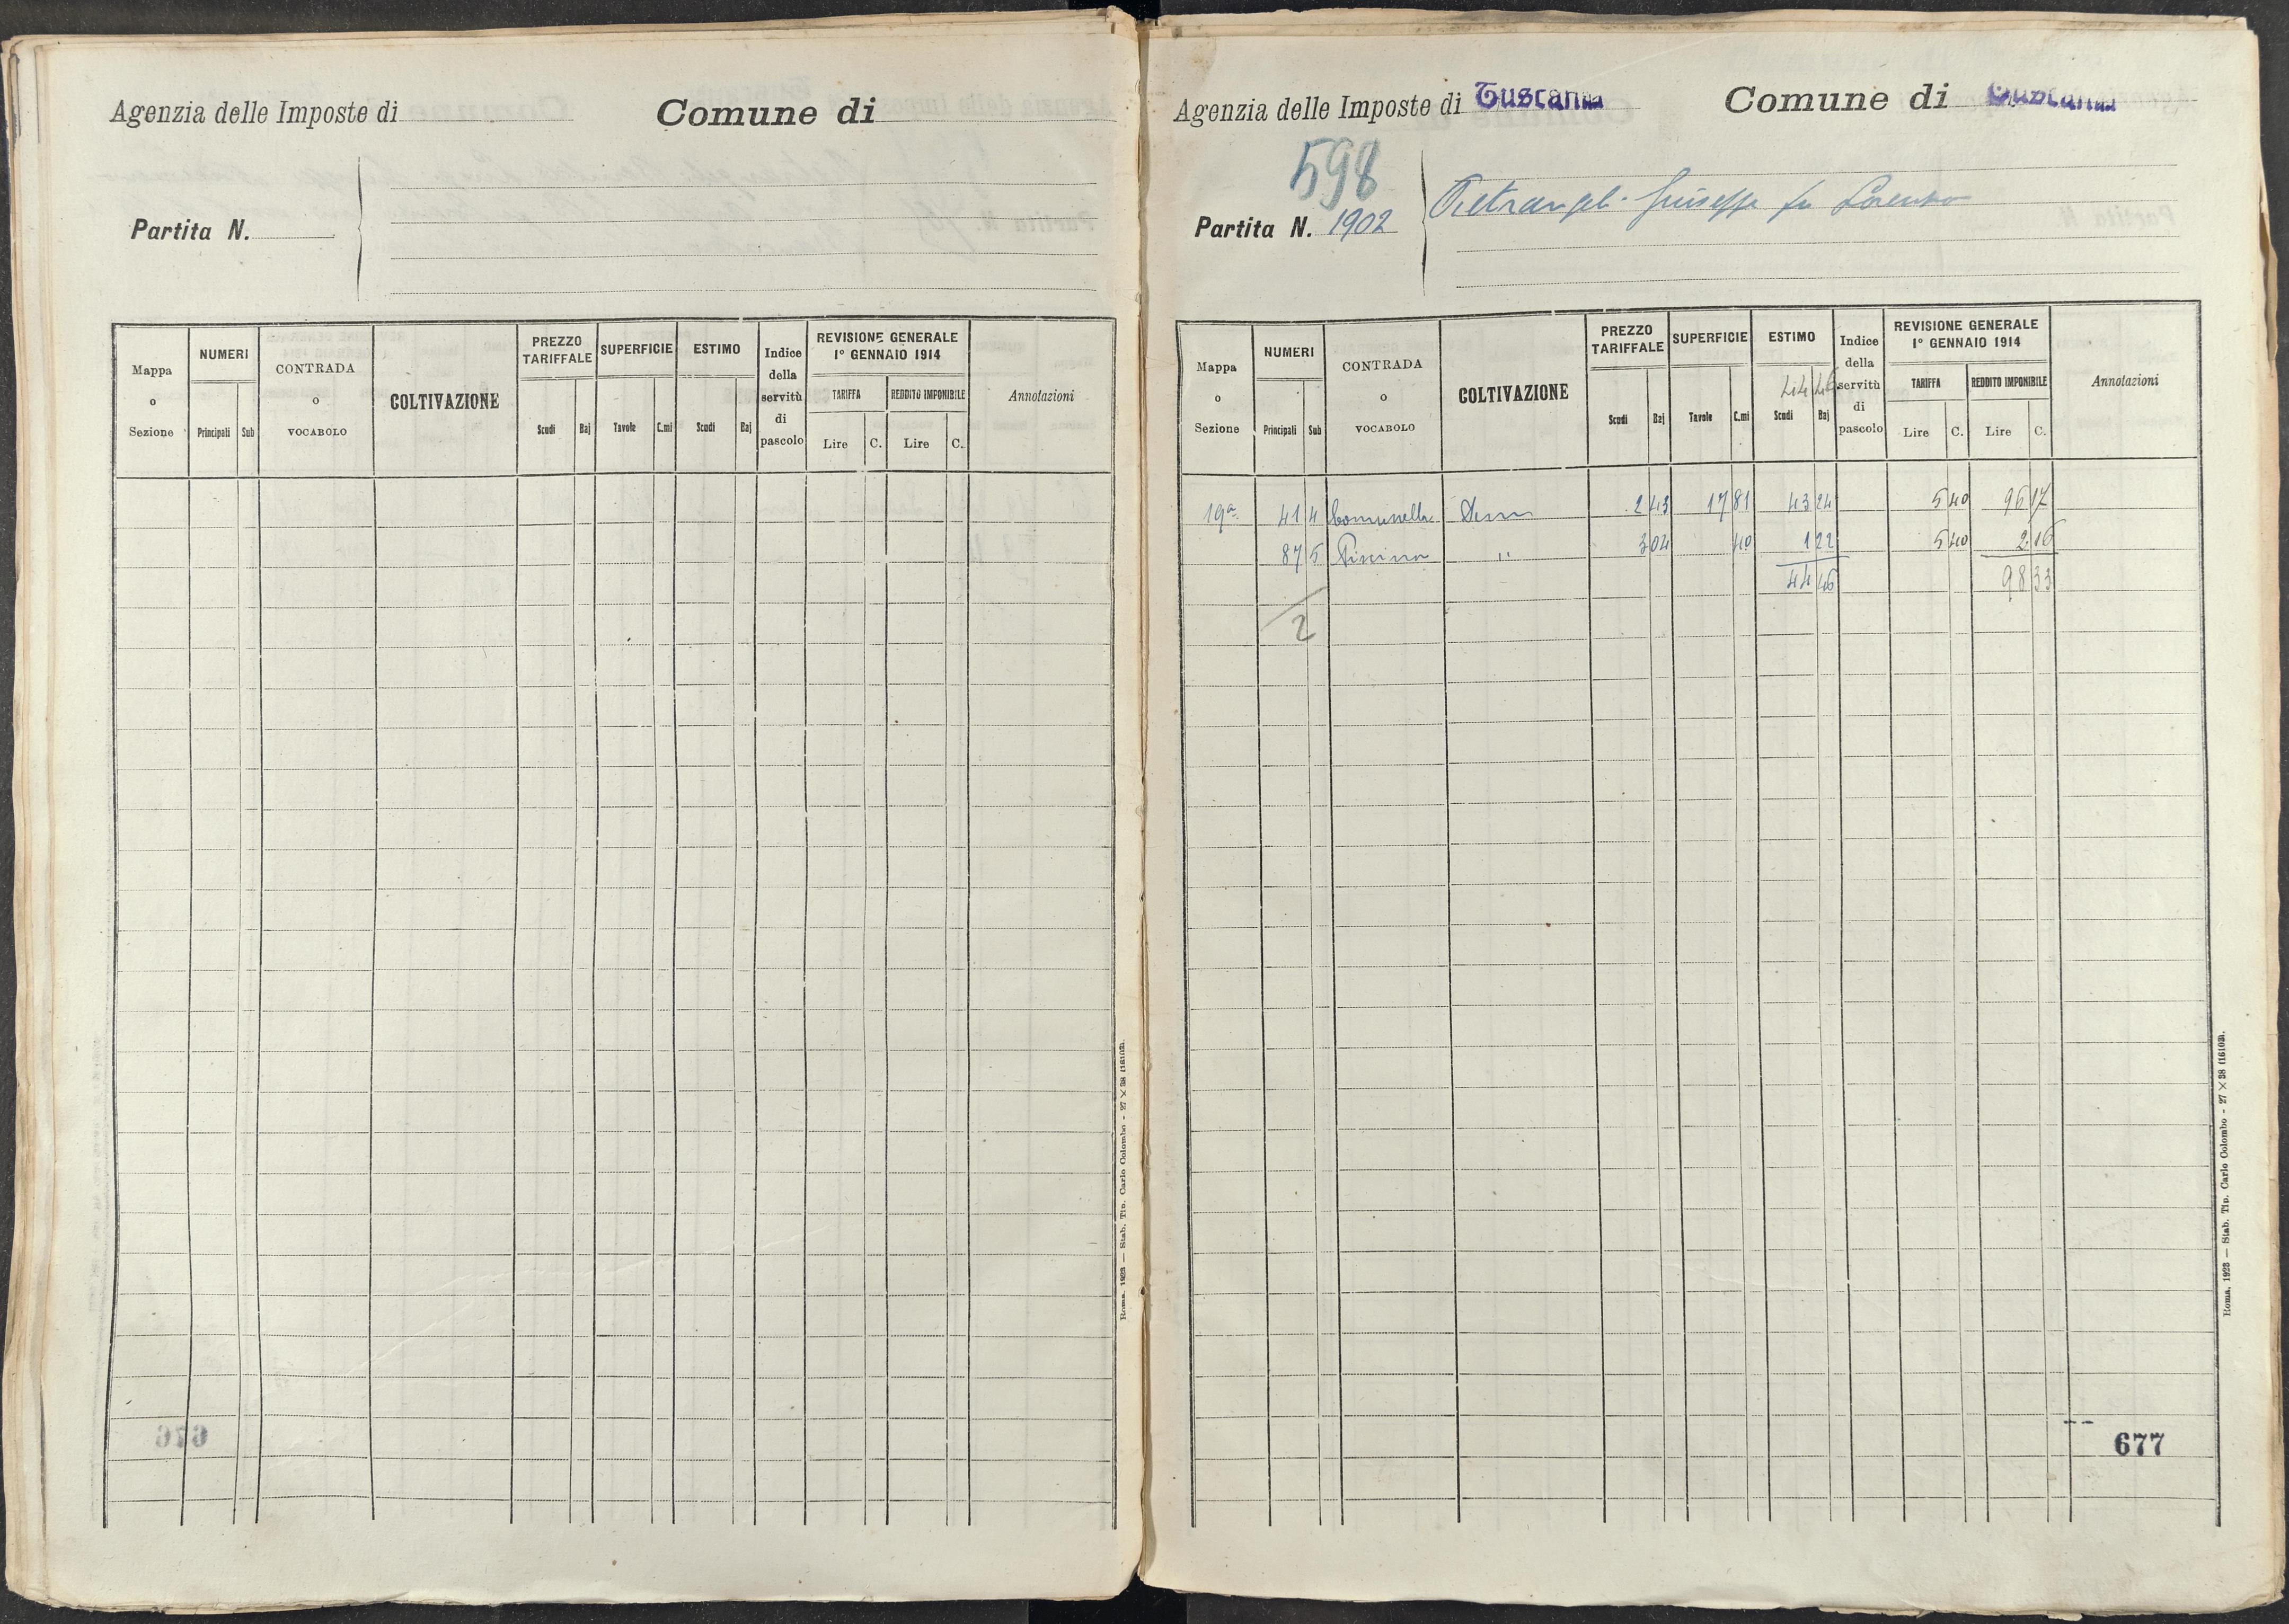 Agenzia delle Imposte di
Comune di
Partita N.
Mappa o Sezione
NUMERI
Principali
Sub
CONTRADA o VOCABOLO
COLTIVAZIONE
PREZZO TARIFFALE
Scudi
Baj
SUPERFICIE
Tavole
C.mi
ESTIMO
Scudi
Baj
Indice della servitù di pascolo
REVISIONE GENERALE 1° GENNAIO 1914
TARIFFA
Lire
C.
REDDITO IMPONIBILE
Lire
C.
Annotazioni
Roma, 1923 — Stab. Tip. Carlo Colombo - 27 × 38 (16103).
676
Agenzia delle Imposte di Tuscania
Comune di Tuscania
598
Partita N. 1902
Pietrangeli Giuseppe fu Lorenzo
Mappa o Sezione
NUMERI
Principali
Sub
CONTRADA o VOCABOLO
COLTIVAZIONE
PREZZO TARIFFALE
Scudi
Baj
SUPERFICIE
Tavole
C.mi
ESTIMO
44 46
Scudi
Baj
Indice della servitù di pascolo
REVISIONE GENERALE 1° GENNAIO 1914
TARIFFA
Lire
C.
REDDITO IMPONIBILE
Lire
C.
Annotazioni
19a 41 4 Comunella 2 43 17 81 43 24 5 40 96 17
87 5 Piscina " 3 04 40 1 22 5 40 2 16
44 46 98 33
2
677
Roma, 1923 — Stab. Tip. Carlo Colombo - 27 × 38 (16103).